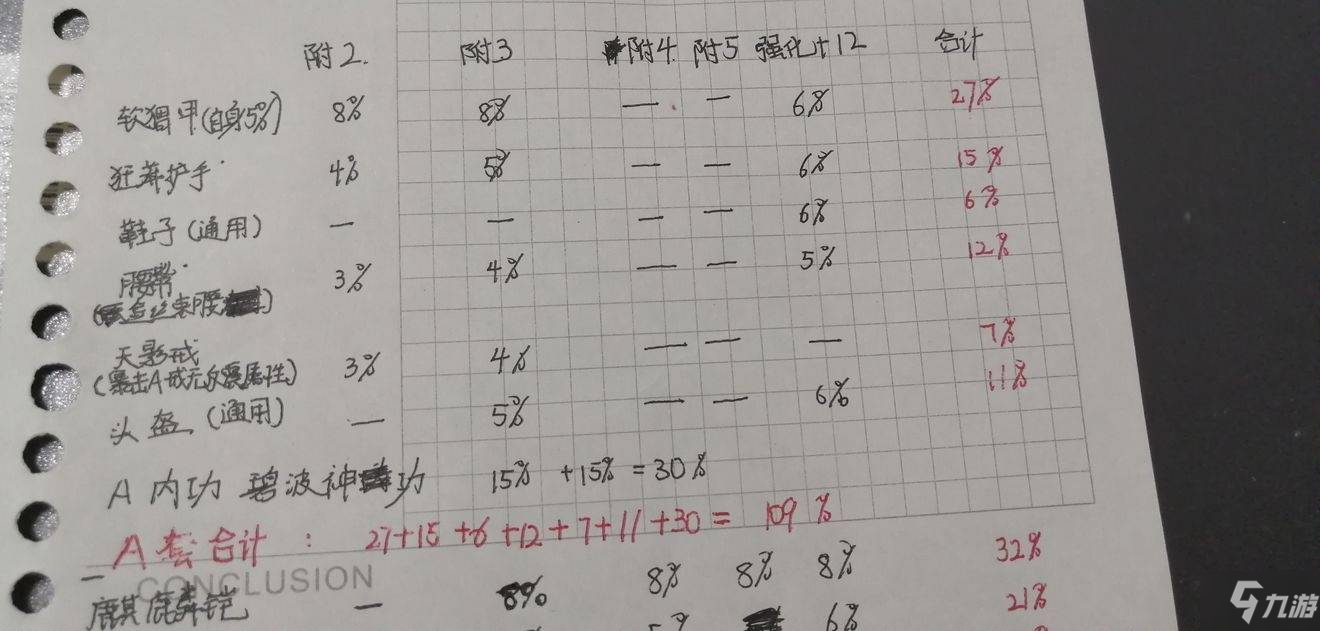 附2. 附3 附4. 附5 强化+12 合计
软猬甲(自身5%) 8% 8% — — 6% 27%
狂莽护手 4% 5% — — 6% 15%
鞋子(通用) — — — — 6% 6%
腰带 3% 4% — — 5% 12%
束腰
天影戒 3% 4% — — — 7%
(暴击A戒无反震属性)
头盔(通用) — 5% — — 6% 11%
A 内功 碧波神功 15% +15% =30%
A套合计: 27+15+6+12+7+11+30= 109%
CONCLUSION
麒麟铠 — 8% 8% 8% 8% 32%
6% 21%
九游